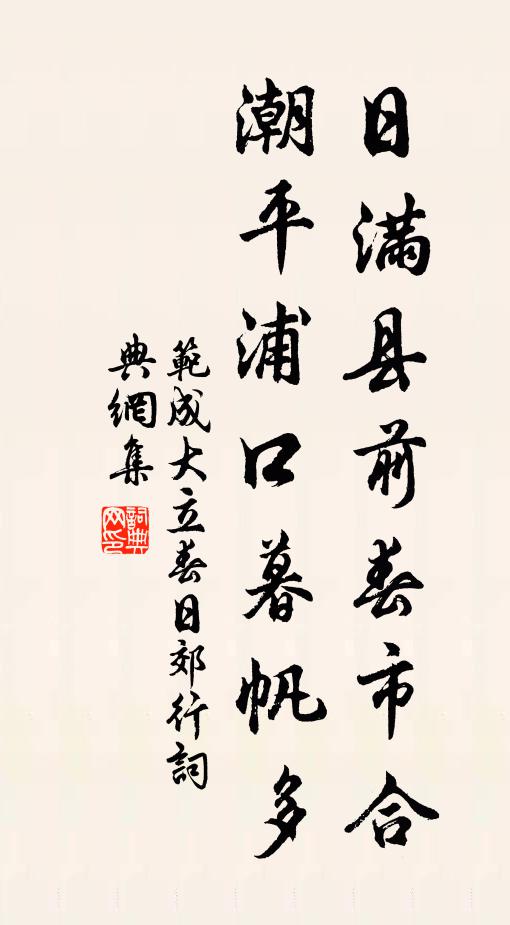 日满县前春市合
潮平浦口暮帆多
範成大立春日郊行詞
典網集
詞典网印